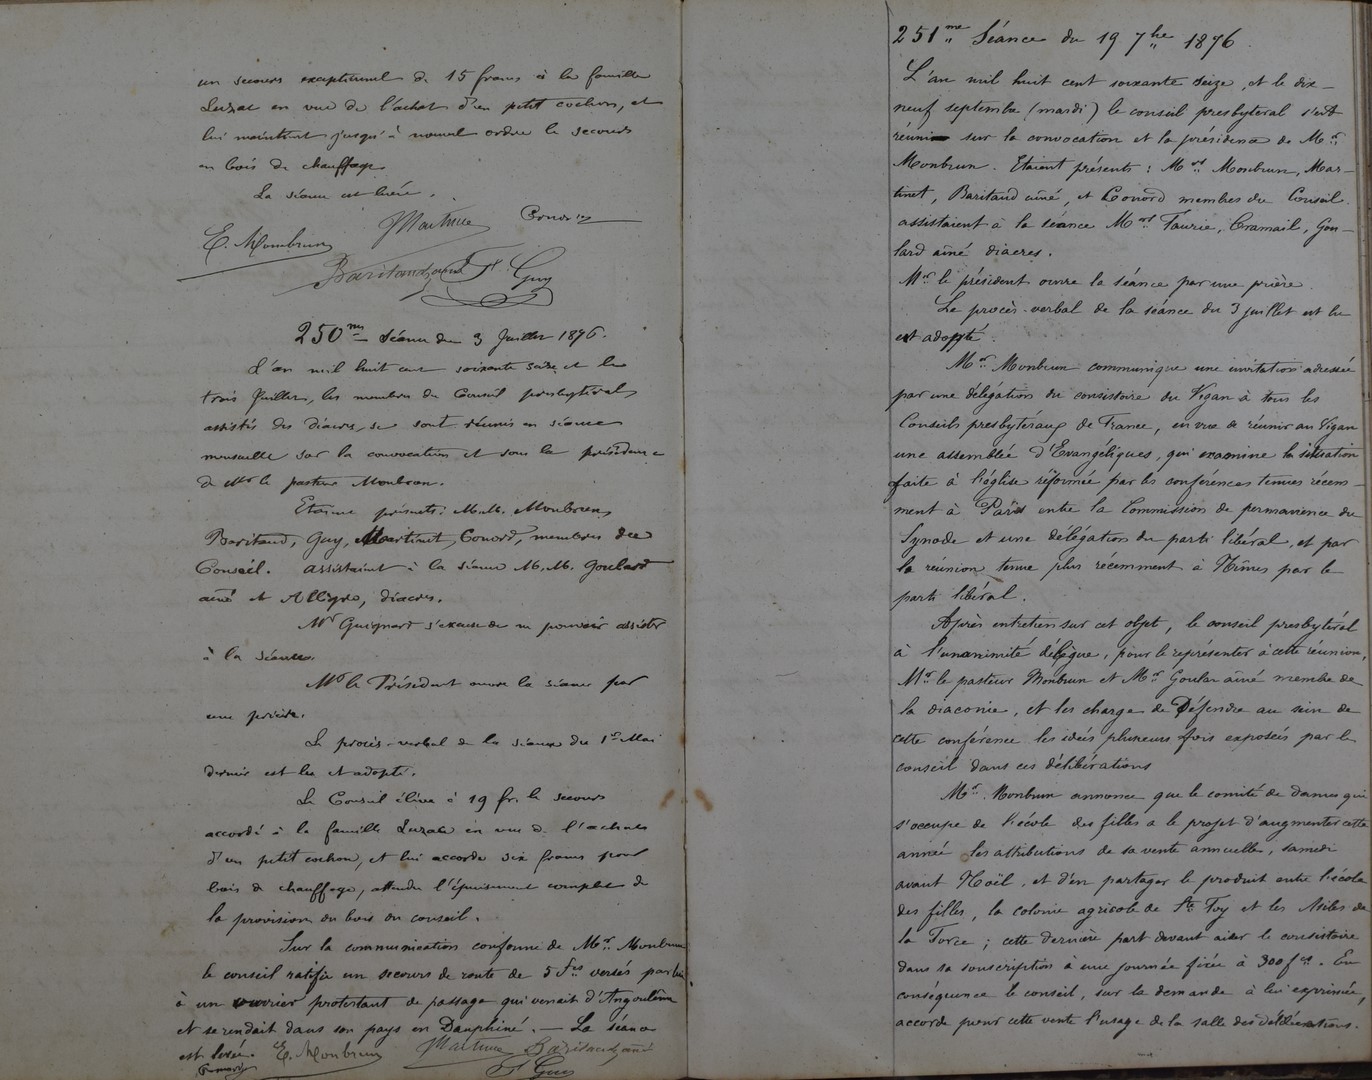 un secours exceptionnel de 15 francs à la famille
Luzac en vue de l'achat d'un petit cochon, et
lui maintient jusqu'à nouvel ordre le secours
en bois de chauffage.
La séance est levée.
E. Monbrun Martinet Conord
Baritaud ainé F. Guy
250me Séance du 3 Juillet 1876.
L'an mil huit cent soixante seize et le
trois Juillet, les membres du Conseil presbytéral
assistés des diacres, se sont réunis en séance
mensuelle sur la convocation et sous la présidence
de Mr le pasteur Monbrun.
Etaient présents : M.M. Monbrun,
Baritaud, Guy, Martinet, Conord, membres du
Conseil. assistaient à la séance M.M. Goulard
ainé et Allègre, diacres.
Mr Guignard s'excuse de ne pouvoir assister
à la séance.
Mr le Président ouvre la séance par
une prière.
Le procès-verbal de la séance du 1er Mai
dernier est lu et adopté.
Le Conseil élève à 19 fr. le secours
accordé à la famille Luzac en vue de l'achat
d'un petit cochon, et lui accorde six francs pour
bois de chauffage, attendu l'épuisement complet de
la provision de bois du conseil.
Sur la communication conforme de Mr. Monbrun
le conseil ratifie un secours de route de 5 frs versés par lui
à un ouvrier protestant de passage qui venait d'Angoulême
et se rendait dans son pays en Dauphiné. — La séance
est levée. E. Monbrun Martinet Baritaud ainé
Conord F. Guy
251me Séance du 19 7bre 1876
L'an mil huit cent soixante seize, et le dix-
neuf septembre (mardi) le conseil presbyteral s'est
réuni sur la convocation et la présidence de Mr
Monbrun. Etaient présents : Mrs Monbrun, Mar-
tinet, Baritaud ainé, et Conord membres du Conseil.
assistaient à la séance Mrs Faurie, Cramail, Gou-
lard ainé diacres.
Mr le président ouvre la séance par une prière.
Le procès-verbal de la séance du 3 juillet est lu
et adopté.
Mr Monbrun communique une invitation adressée
par une délégation du consistoire du Vigan à tous les
Conseils presbytéraux de France, en vue de réunir au Vigan
une assemblée d'Evangéliques, qui examine la situation
faite à l'église réformée par les conférences tenues récem-
ment à Paris entre la Commission de permanence du
Synode et une délégation du parti libéral, et par
la réunion tenue plus récemment à Nîmes par le
parti libéral.
Après entretien sur cet objet, le conseil presbytéral
à l'unanimité délègue, pour le représenter à cette réunion,
Mr le pasteur Monbrun et Mr Goular ainé membre de
la diaconie, et les charge de Défendre au sein de
cette conférence les idées plusieurs fois exposées par le
conseil dans ces délibérations
Mr. Monbrun annonce que le comité de dames qui
s'occupe de l'école des filles a le projet d'augmenter cette
année les attributions de sa vente annuelle, samedi
avant Noël, et d'en partager le produit entre l'école
des filles, la colonie agricole de Ste Foy et les Asiles de
la Force ; cette dernière part devant aider le consistoire
dans sa souscription à une journée fixée à 300 frs. En
conséquence le conseil, sur la demande à lui exprimée,
accorde pour cette vente l'usage de la salle des délibérations.